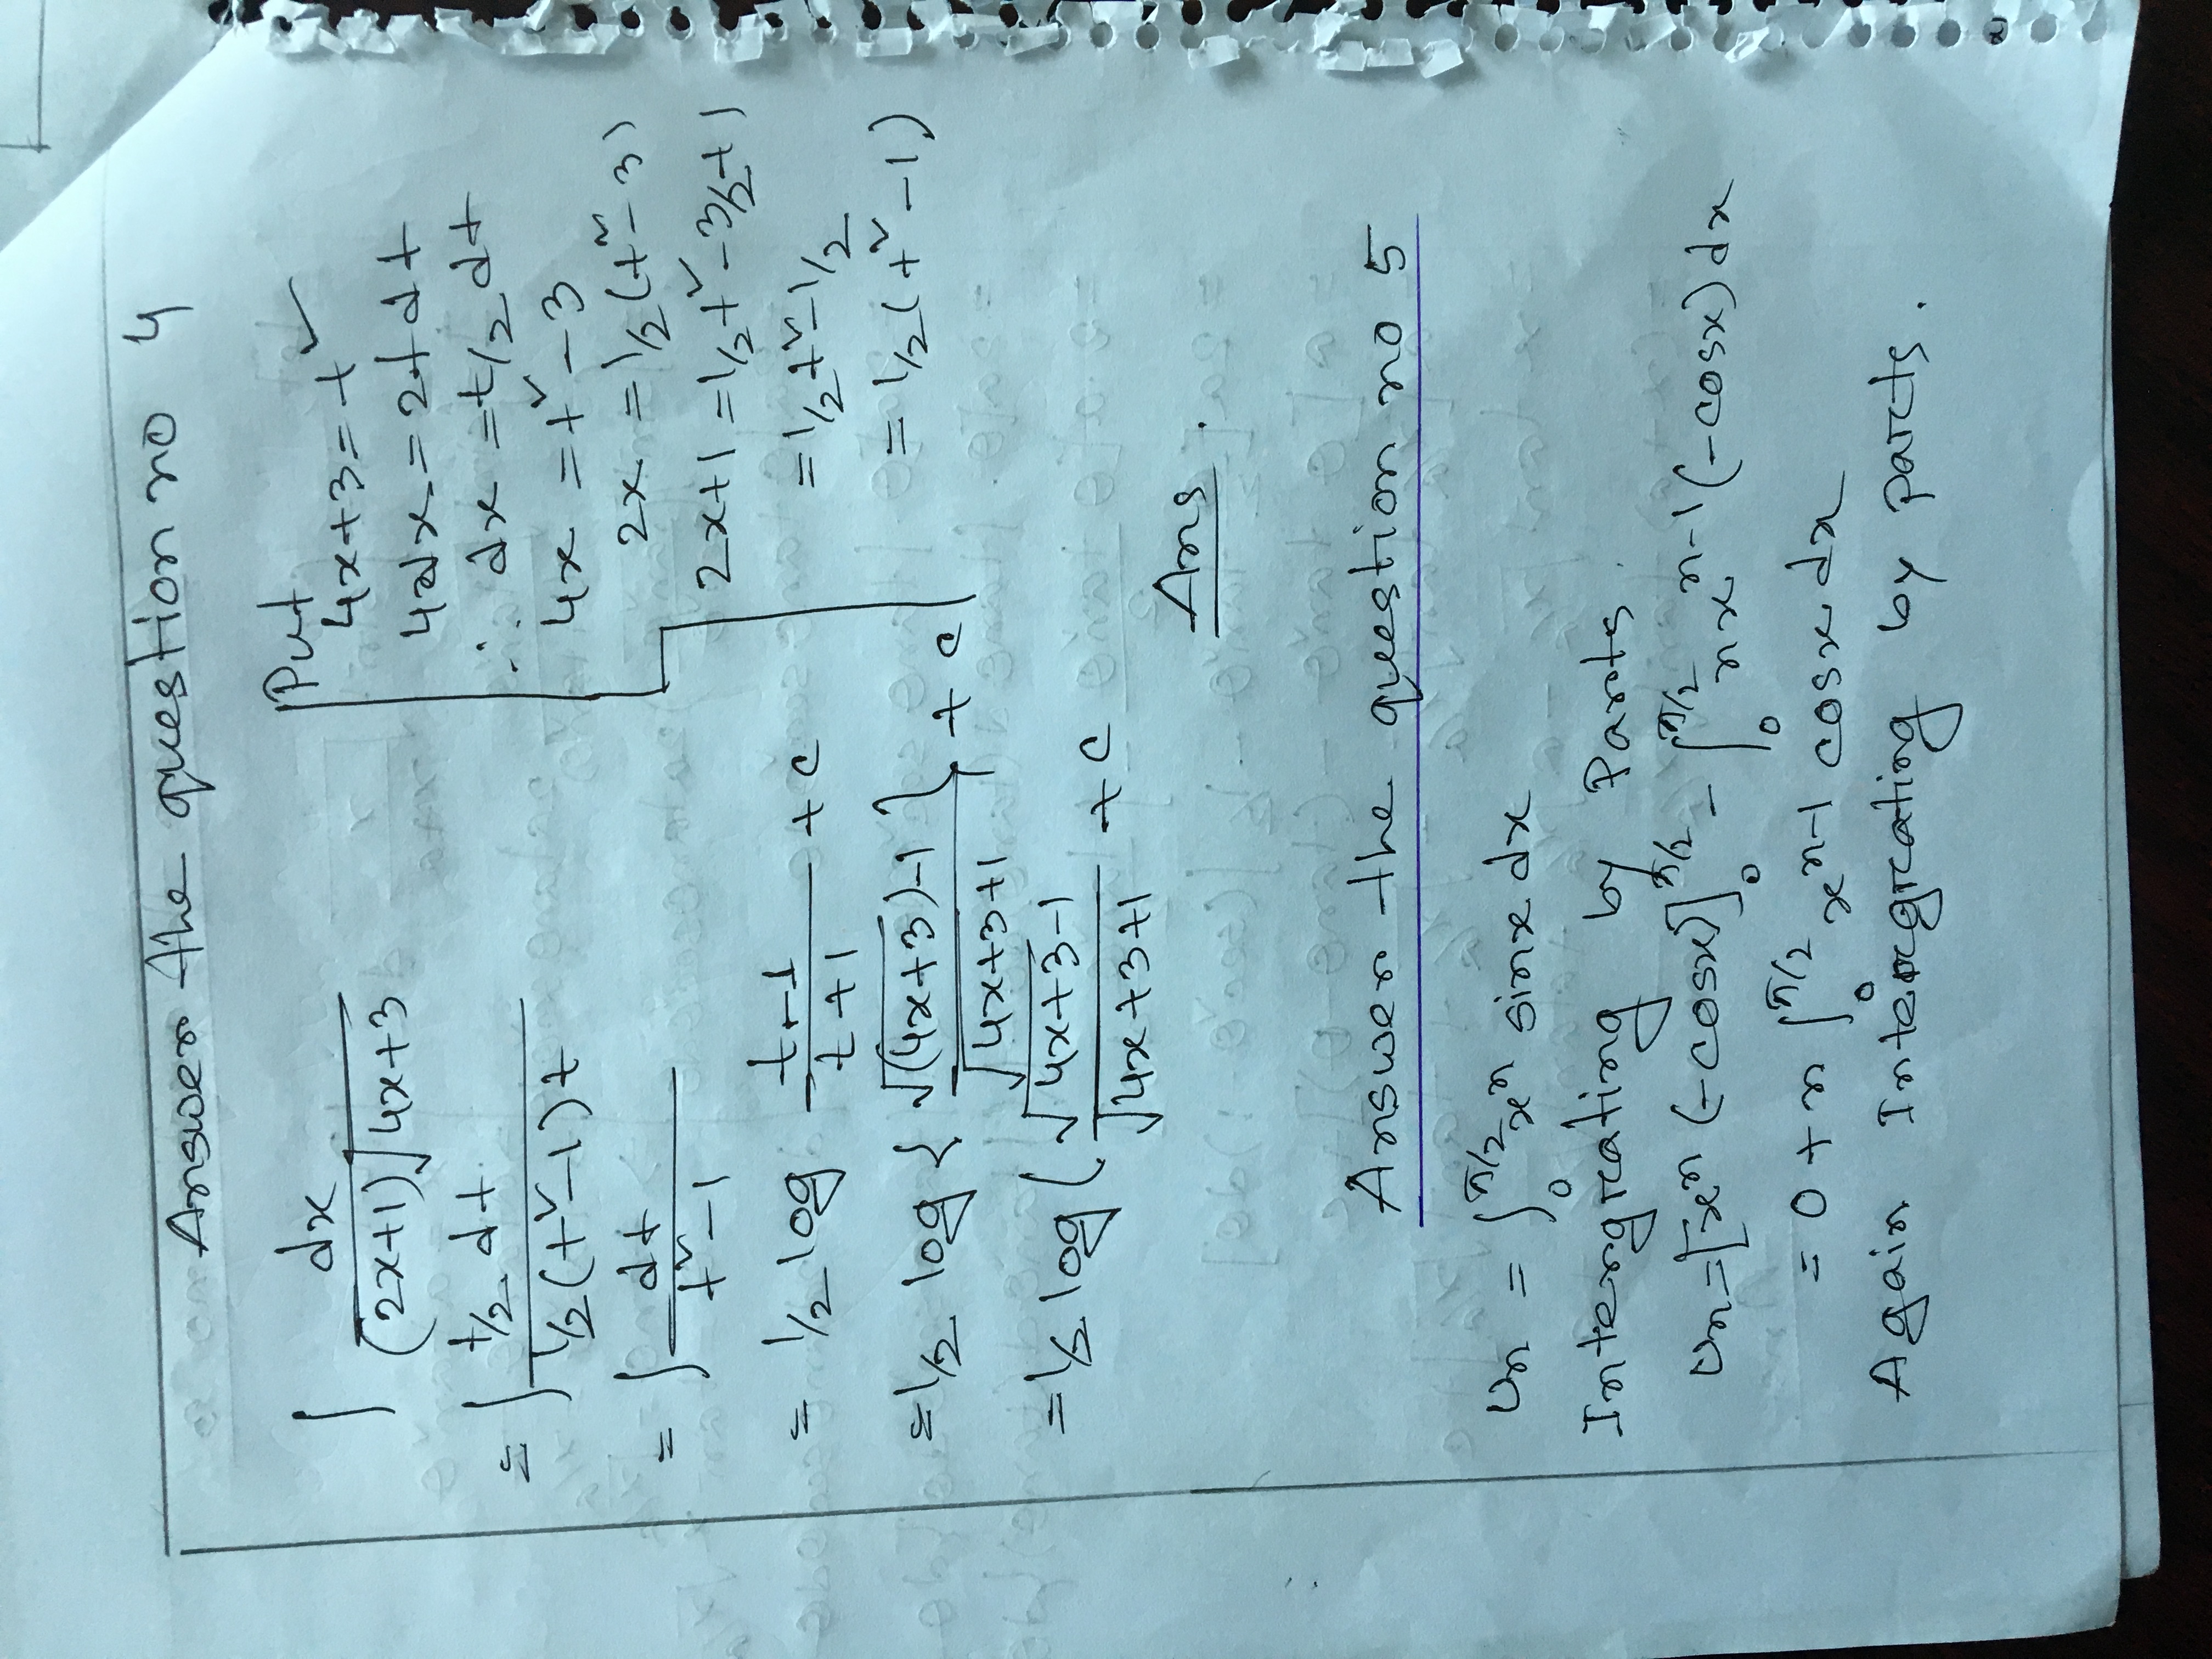 Answer the question no 4
∫ dx / (2x+1)√4x+3
= ∫ t/2 dt / ½(t²-1)t
= ∫ dt / t²-1
= ½ log t-1 / t+1 + c
= ½ log { √(4x+3)-1 / √4x+3+1 } + c
= ½ log ( √4x+3-1 / √4x+3+1 + c
Ans.
Put
4x+3 = t²
4dx = 2t dt
∴ dx = t/2 dt
4x = t² - 3
2x = ½(t² - 3)
2x+1 = ½t² - 3/2 + 1
= ½t² - ½
= ½(t² - 1)
Answer the question no 5
Un = ∫₀^π/2 xⁿ sinx dx
Intergrating by Parts.
Un = [xⁿ (-cosx)]₀^π/2 - ∫₀^π/2 nxⁿ⁻¹ (-cosx) dx
= 0 + n ∫₀^π/2 xⁿ⁻¹ cosx dx
Again Intergrating by parts.